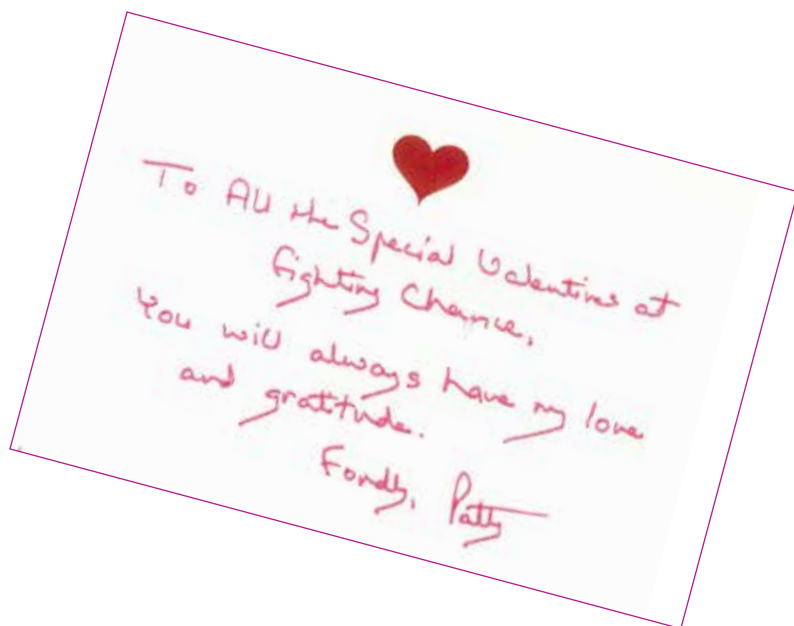 To All the Special Valentines at
Fighting Chance,
You will always have my love
and gratitude.
Fondly, Patty